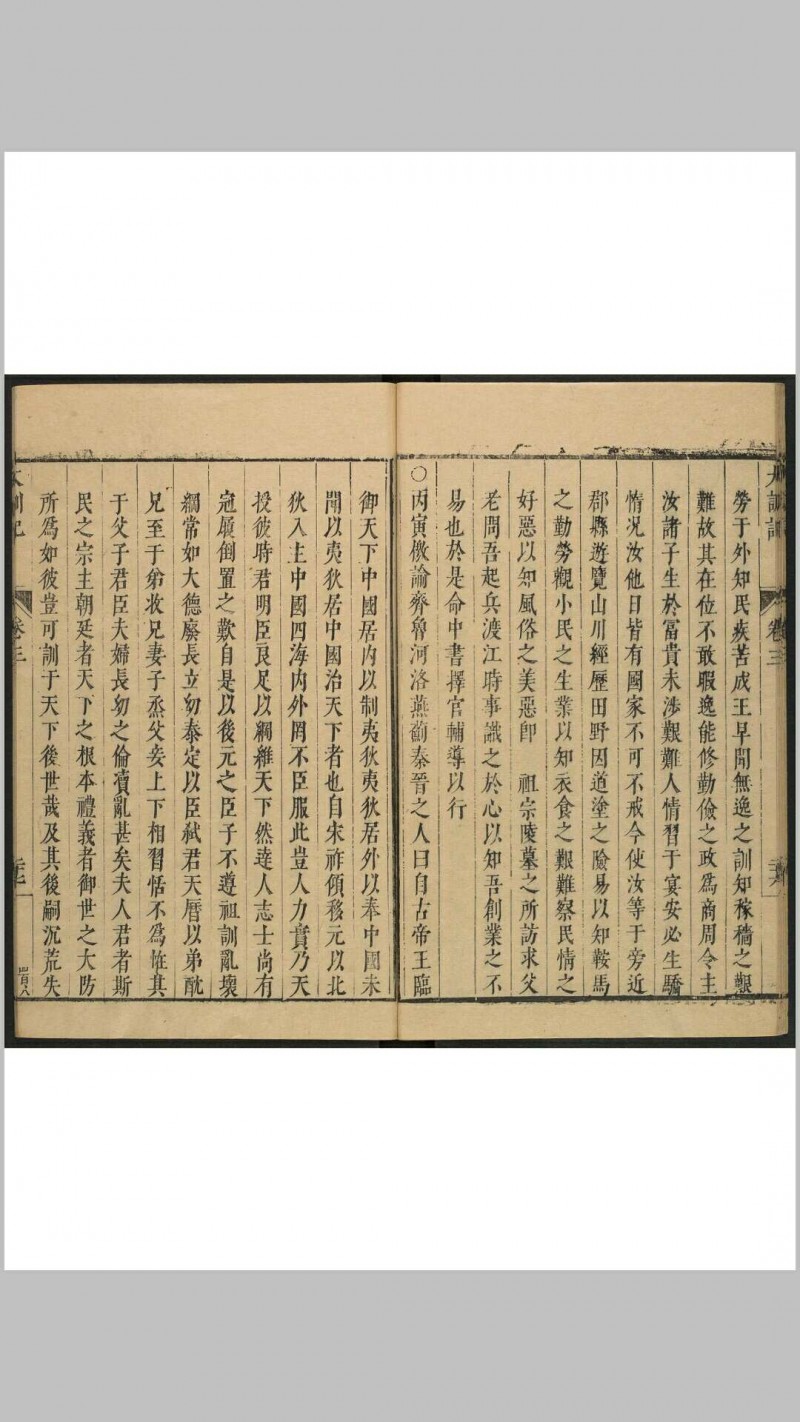 大訓記
卷三
勞于外知民疾苦成王早聞無逸之訓知稼穡之艱
難故其在位不敢暇逸能修勤儉之政爲商周令主
汝諸子生於富貴未涉艱難人情習于宴安必生驕
惰况汝他日皆有國家不可不戒今使汝等于旁近
郡縣遊覽山川經歷田野因道塗之險易以知鞍馬
之勤勞觀小民之生業以知衣食之艱難察民情之
好惡以知風俗之美惡卽 祖宗陵墓之所訪求父
老問吾起兵渡江時事識之於心以知吾創業之不
易也於是命中書擇官輔導以行
○丙寅檄諭齊魯河洛燕薊秦晉之人曰自古帝王臨
御天下中國居内以制夷狄夷狄居外以奉中國未
聞以夷狄居中國治天下者也自宋祚傾移元以北
狄入主中國四海内外罔不臣服此豈人力實乃天
授彼時君明臣良足以綱維天下然達人志士尚有
冠履倒置之歎自是以後元之臣子不遵祖訓亂壞
綱常如大德廢長立幼泰定以臣弑君天曆以弟酖
兄至于弟收兄妻子烝父妾上下相習恬不爲怪其
于父子君臣夫婦長幼之倫瀆亂甚矣夫人君者斯
民之宗主朝廷者天下之根本禮義者御世之大防
所爲如彼豈可訓于天下後世哉及其後嗣沉荒失
大訓記
卷三